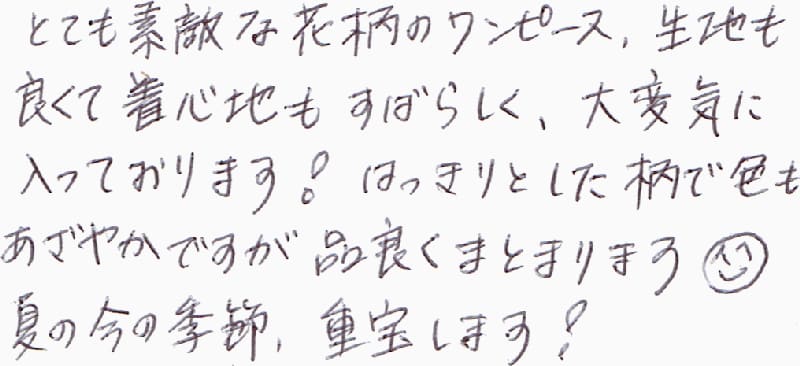 とても素敵な花柄のワンピース、生地も
良くて着心地もすばらしく、大変気に
入っております！はっきりとした柄で色も
あざやかですが品良くまとまります☺
夏の今の季節、重宝します！